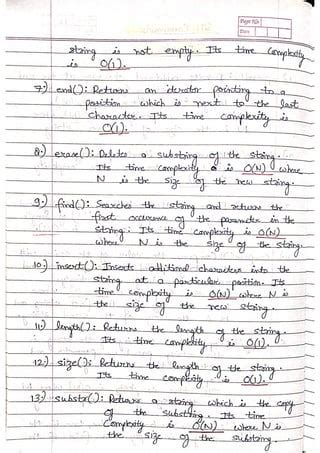 Page No.
Date
string is not empty. Its time complexity
is O(1).
7.) end(): Returns an iterator pointing to a
position which is next to the last
character. Its time complexity is
O(1).
8.) erase(): Deletes a substring of the string.
Its time complexity is O(N) where
N is the size of the new string.
9.) find(): Searches the string and returns the
first occurence of the parameter in the
string. Its time complexity is O(N)
where N is the size of the string.
10.) insert(): Inserts additional characters into the
string at a particular position. Its
time complexity is O(N) where N is
the size of the new string.
11.) length(): Returns the length of the string.
Its time complexity is O(1).
12.) size(): Returns the length of the string.
Its time complexity is O(1).
13.) substr(): Returns a string which is the copy
of the substring. Its time
complexity is O(N) where N is
the size of the substring.